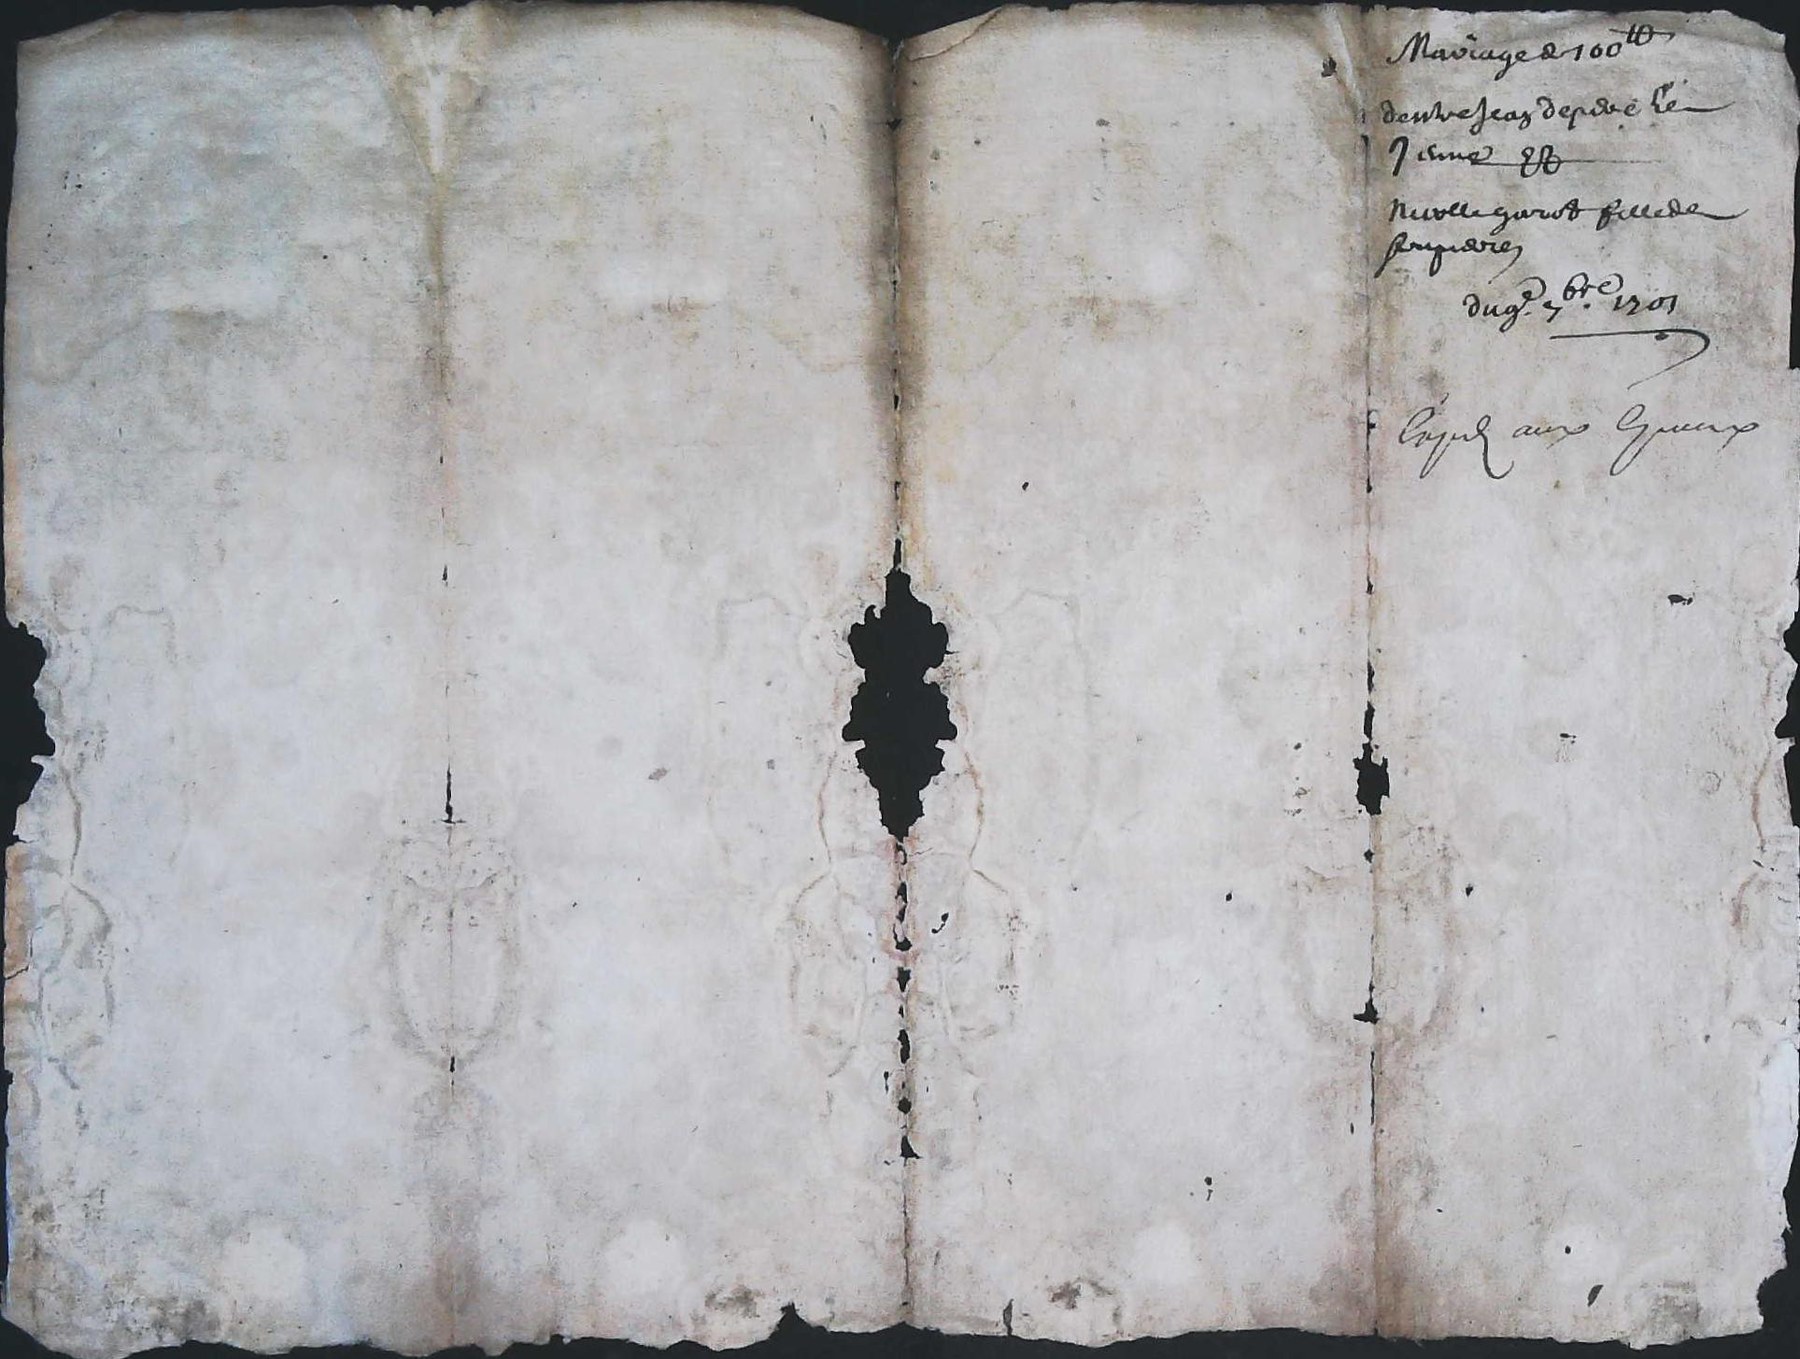 Mariage de 100 tt
dentre Jean depere le
Jeune et
Nicolle garot fille de
feu pierre
du 9e 7bre 1701
Expedié aux Epoux